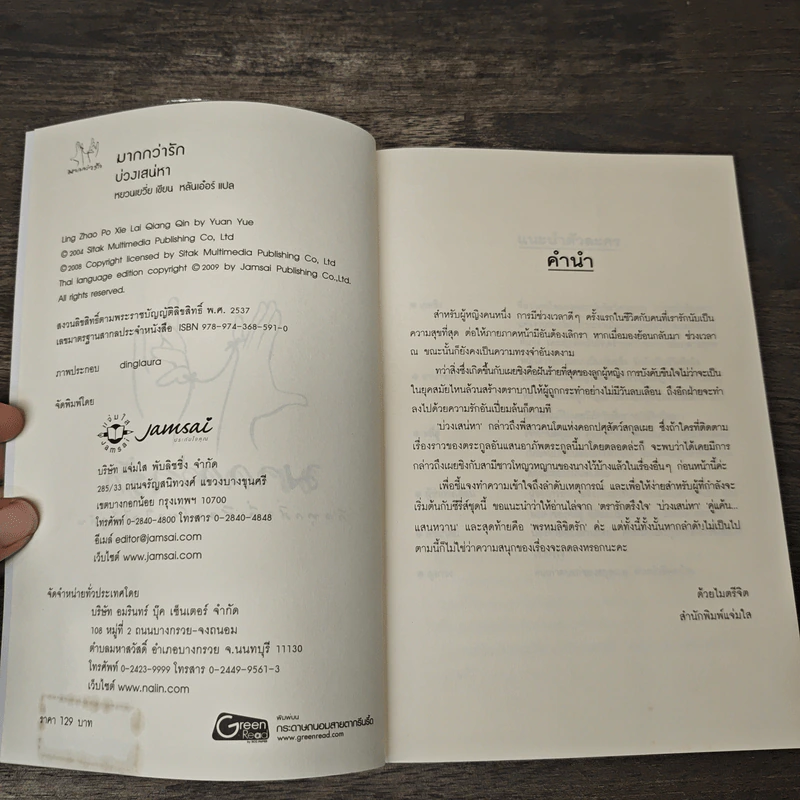 มากกว่ารัก
บ่วงเสน่หา
หยวนเยวี่ย เขียน หลันเอ๋อร์ แปล
Ling Zhao Po Xie Lai Qiang Qin by Yuan Yue
© 2004 Sitak Multimedia Publishing Co, Ltd
©2008 Copyright licensed by Sitak Multimedia Publishing Co., Ltd
Thai language edition copyright ©2009 by Jamsai Publishing Co.,Ltd.
All rights reserved.
สงวนลิขสิทธิ์ตามพระราชบัญญัติลิขสิทธิ์ พ.ศ. 2537
เลขมาตรฐานสากลประจำหนังสือ ISBN 978-974-368-591-0
ภาพประกอบ dinglaura
จัดพิมพ์โดย
แจ่มใส
Jamsai
jamsai
บริษัท แจ่มใส พับลิชชิ่ง จำกัด
285/33 ถนนจรัญสนิทวงศ์ แขวงบางขุนศรี
เขตบางกอกน้อย กรุงเทพฯ 10700
โทรศัพท์ 0-2840-4800 โทรสาร 0-2840-4848
อีเมล์ editor@jamsai.com
เว็บไซต์ www.jamsai.com
จัดจำหน่ายทั่วประเทศโดย
บริษัท อมรินทร์ บุ๊ค เซ็นเตอร์ จำกัด
108 หมู่ที่ 2 ถนนบางกรวย-จงถนอม
ตำบลมหาสวัสดิ์ อำเภอบางกรวย จ.นนทบุรี 11130
โทรศัพท์ 0-2423-9999 โทรสาร 0-2449-9561-3
เว็บไซต์ www.naiin.com
ราคา 129 บาท
Green Read
พิมพ์บน
กระดาษถนอมสายตากรีนรี้ด
www.greenread.com
คำนำ
สำหรับผู้หญิงคนหนึ่ง การมีช่วงเวลาดีๆ ครั้งแรกในชีวิตกับคนที่เรารักนับเป็น
ความสุขที่สุด ต่อให้ภายภาคหน้ามีอันต้องเลิกรา หากเมื่อมองย้อนกลับมา ช่วงเวลา
ณ ขณะนั้นก็ยังคงเป็นความทรงจำอันงดงาม
ทว่าสิ่งซึ่งเกิดขึ้นกับเผยชิงคือฝันร้ายที่สุดของลูกผู้หญิง การบังคับขืนใจไม่ว่าจะเป็น
ในยุคสมัยไหนล้วนสร้างตราบาปให้ผู้ถูกกระทำอย่างไม่มีวันลบเลือน ถึงอีกฝ่ายจะทำ
ลงไปด้วยความรักอันเปี่ยมล้นก็ตามที
'บ่วงเสน่หา' กล่าวถึงพี่สาวคนโตแห่งคอกปศุสัตว์สกุลเผย ซึ่งถ้าใครที่ติดตาม
เรื่องราวของตระกูลอันแสนอาภัพตระกูลนี้มาโดยตลอดล่ะก็ จะพบว่าได้เคยมีการ
กล่าวถึงเผยชิงกับสามีชาวไหวหนานของนางไว้บ้างแล้วในเรื่องอื่นๆ ก่อนหน้านี้ค่ะ
เพื่อชี้แจงทำความเข้าใจถึงลำดับเหตุการณ์ และเพื่อให้ง่ายสำหรับผู้ที่กำลังจะ
เริ่มต้นกับซีรี่ส์ชุดนี้ ขอแนะนำว่าให้อ่านไล่จาก 'ตรารักตรึงใจ' 'บ่วงเสน่หา' 'คู่แค้น...
แสนหวาน' และสุดท้ายคือ 'พรหมลิขิตรัก' ค่ะ แต่ทั้งนี้ทั้งนั้นหากลำดับไม่เป็นไป
ตามนี้ก็ไม่ใช่ว่าความสนุกของเรื่องจะลดลงหรอกนะคะ
ด้วยไมตรีจิต
สำนักพิมพ์แจ่มใส